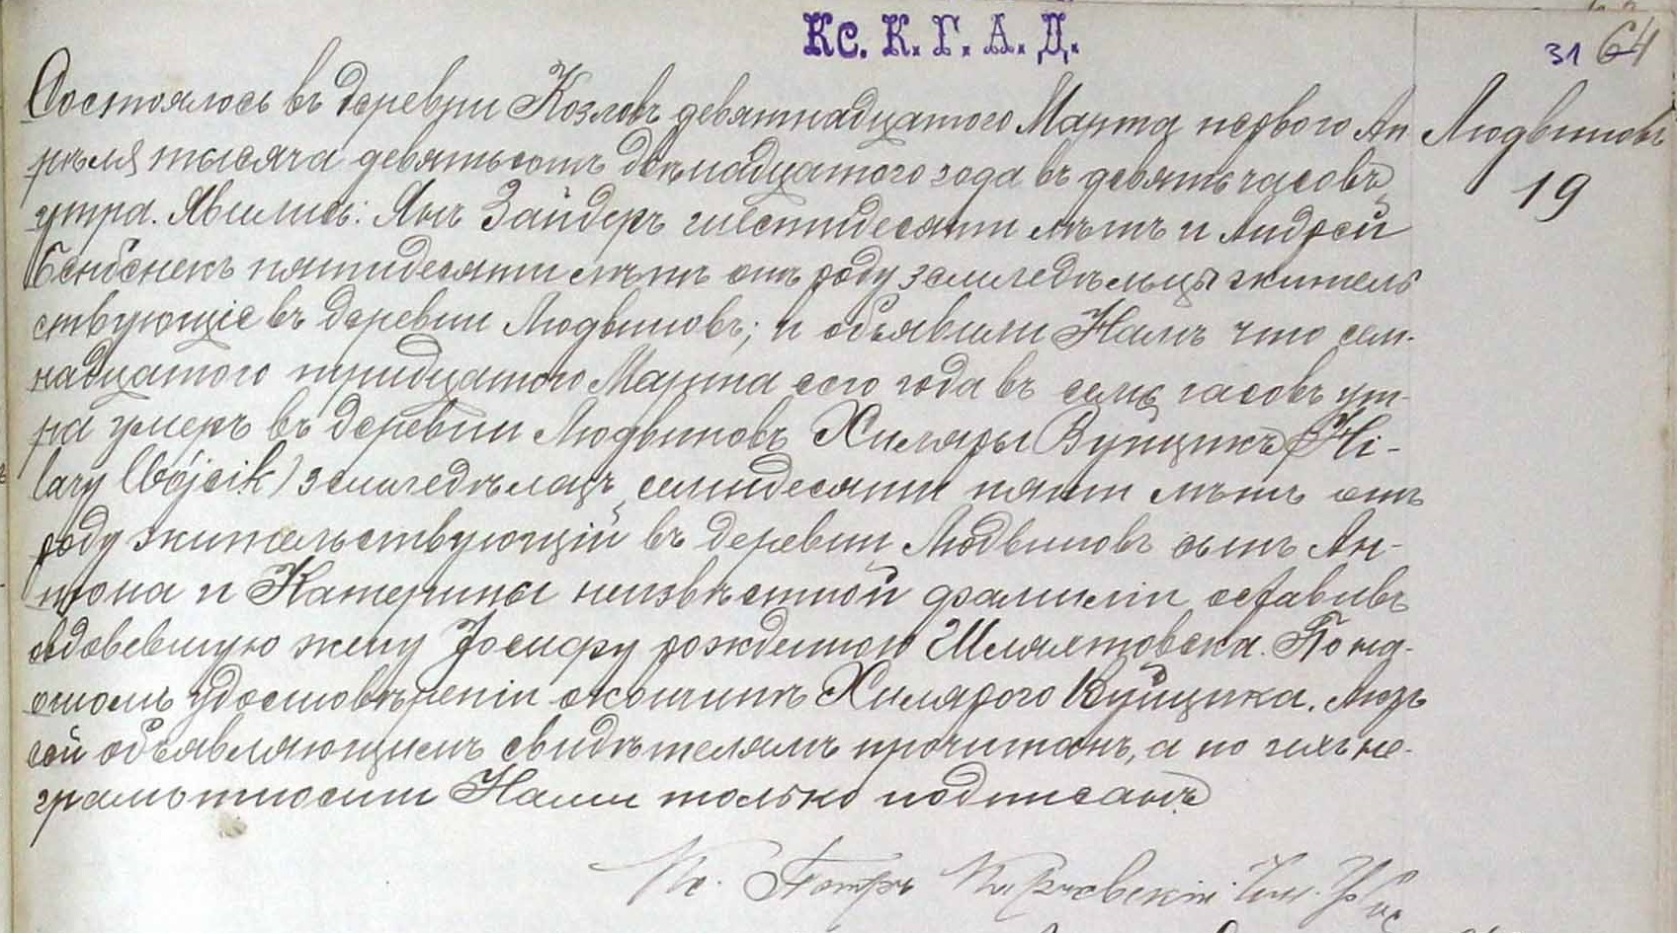 Кс. К. Г. А. Д.
31 64
Состоялось въ деревни Козловъ девятнадцатого Марта первого Ап
Людвиновъ
рѣля тысяча девятьсотъ двѣнадцатого года въ девять часовъ
19
утра. Явились: Янъ Зайдеръ шестидесяти лѣтъ и Андрей
пятидесяти лѣтъ отъ роду земледѣльцы житель
ствующіе въ деревни Людвиновъ; и объявили Намъ что сем-
надцатого тридцатого Марта сего года въ семь часовъ ут-
ра умеръ въ деревни Людвиновъ Хиляры Вуйцикъ (Hi-
lary Wójcik) земледѣлацъ семидесяти пяти лѣтъ отъ
роду жительствующій въ деревни Людвиновъ сынъ Ан-
тона и Катерины неизвѣстной фамиліи оставивъ
овдовевшую жену Іосифу рожденною. По на-
очномъ удостовѣреніи о кончинѣ Хилярого Вуйцика.
сей объявляющимъ свидѣтелямъ прочитанъ, а по ихъ не-
грамотности Нами только подписанъ
Кс. Петръ